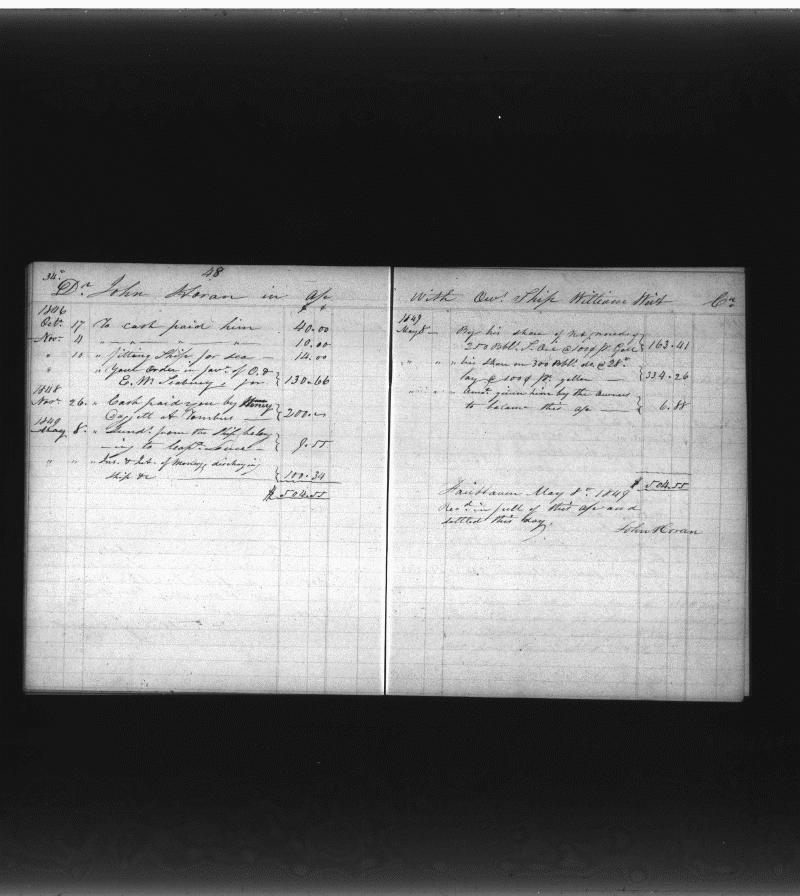 34.
48
Dr John Horan in a/c
1846
Octr. 17 To cash paid him 40.00
Novr. 4 " " " " 10.00
" 10 " fitting Ship for sea 14.00
" " Your Order in favr. of O. &
E. W. Seabury & for 130.66
1848
Novr. 26 " Cash paid you by Henry
at Tombes 200.
1849
May 8. " Sunds. from the Ship belong
ing to Capt. 9.55
" " " Ins. & Int. of Money, discharging
ship &c 100.34
$ 504.55
With Owrs. Ship William Wirt Cr
1849
May 8 By his share of Nt. proceeds
250 Bbls. S. Oil @ 100¢ pr Gall 163.41
" " " his share on 300 Bbls. do. @ 28th
lay @ 100¢ pr. gallon 334.26
" " " amt. given him by the Owners
to balance this a/c 6.88
$ 504.55
Fairhaven May 8th. 1849
Recd. in full of this a/c and
settled this day.
John Horan